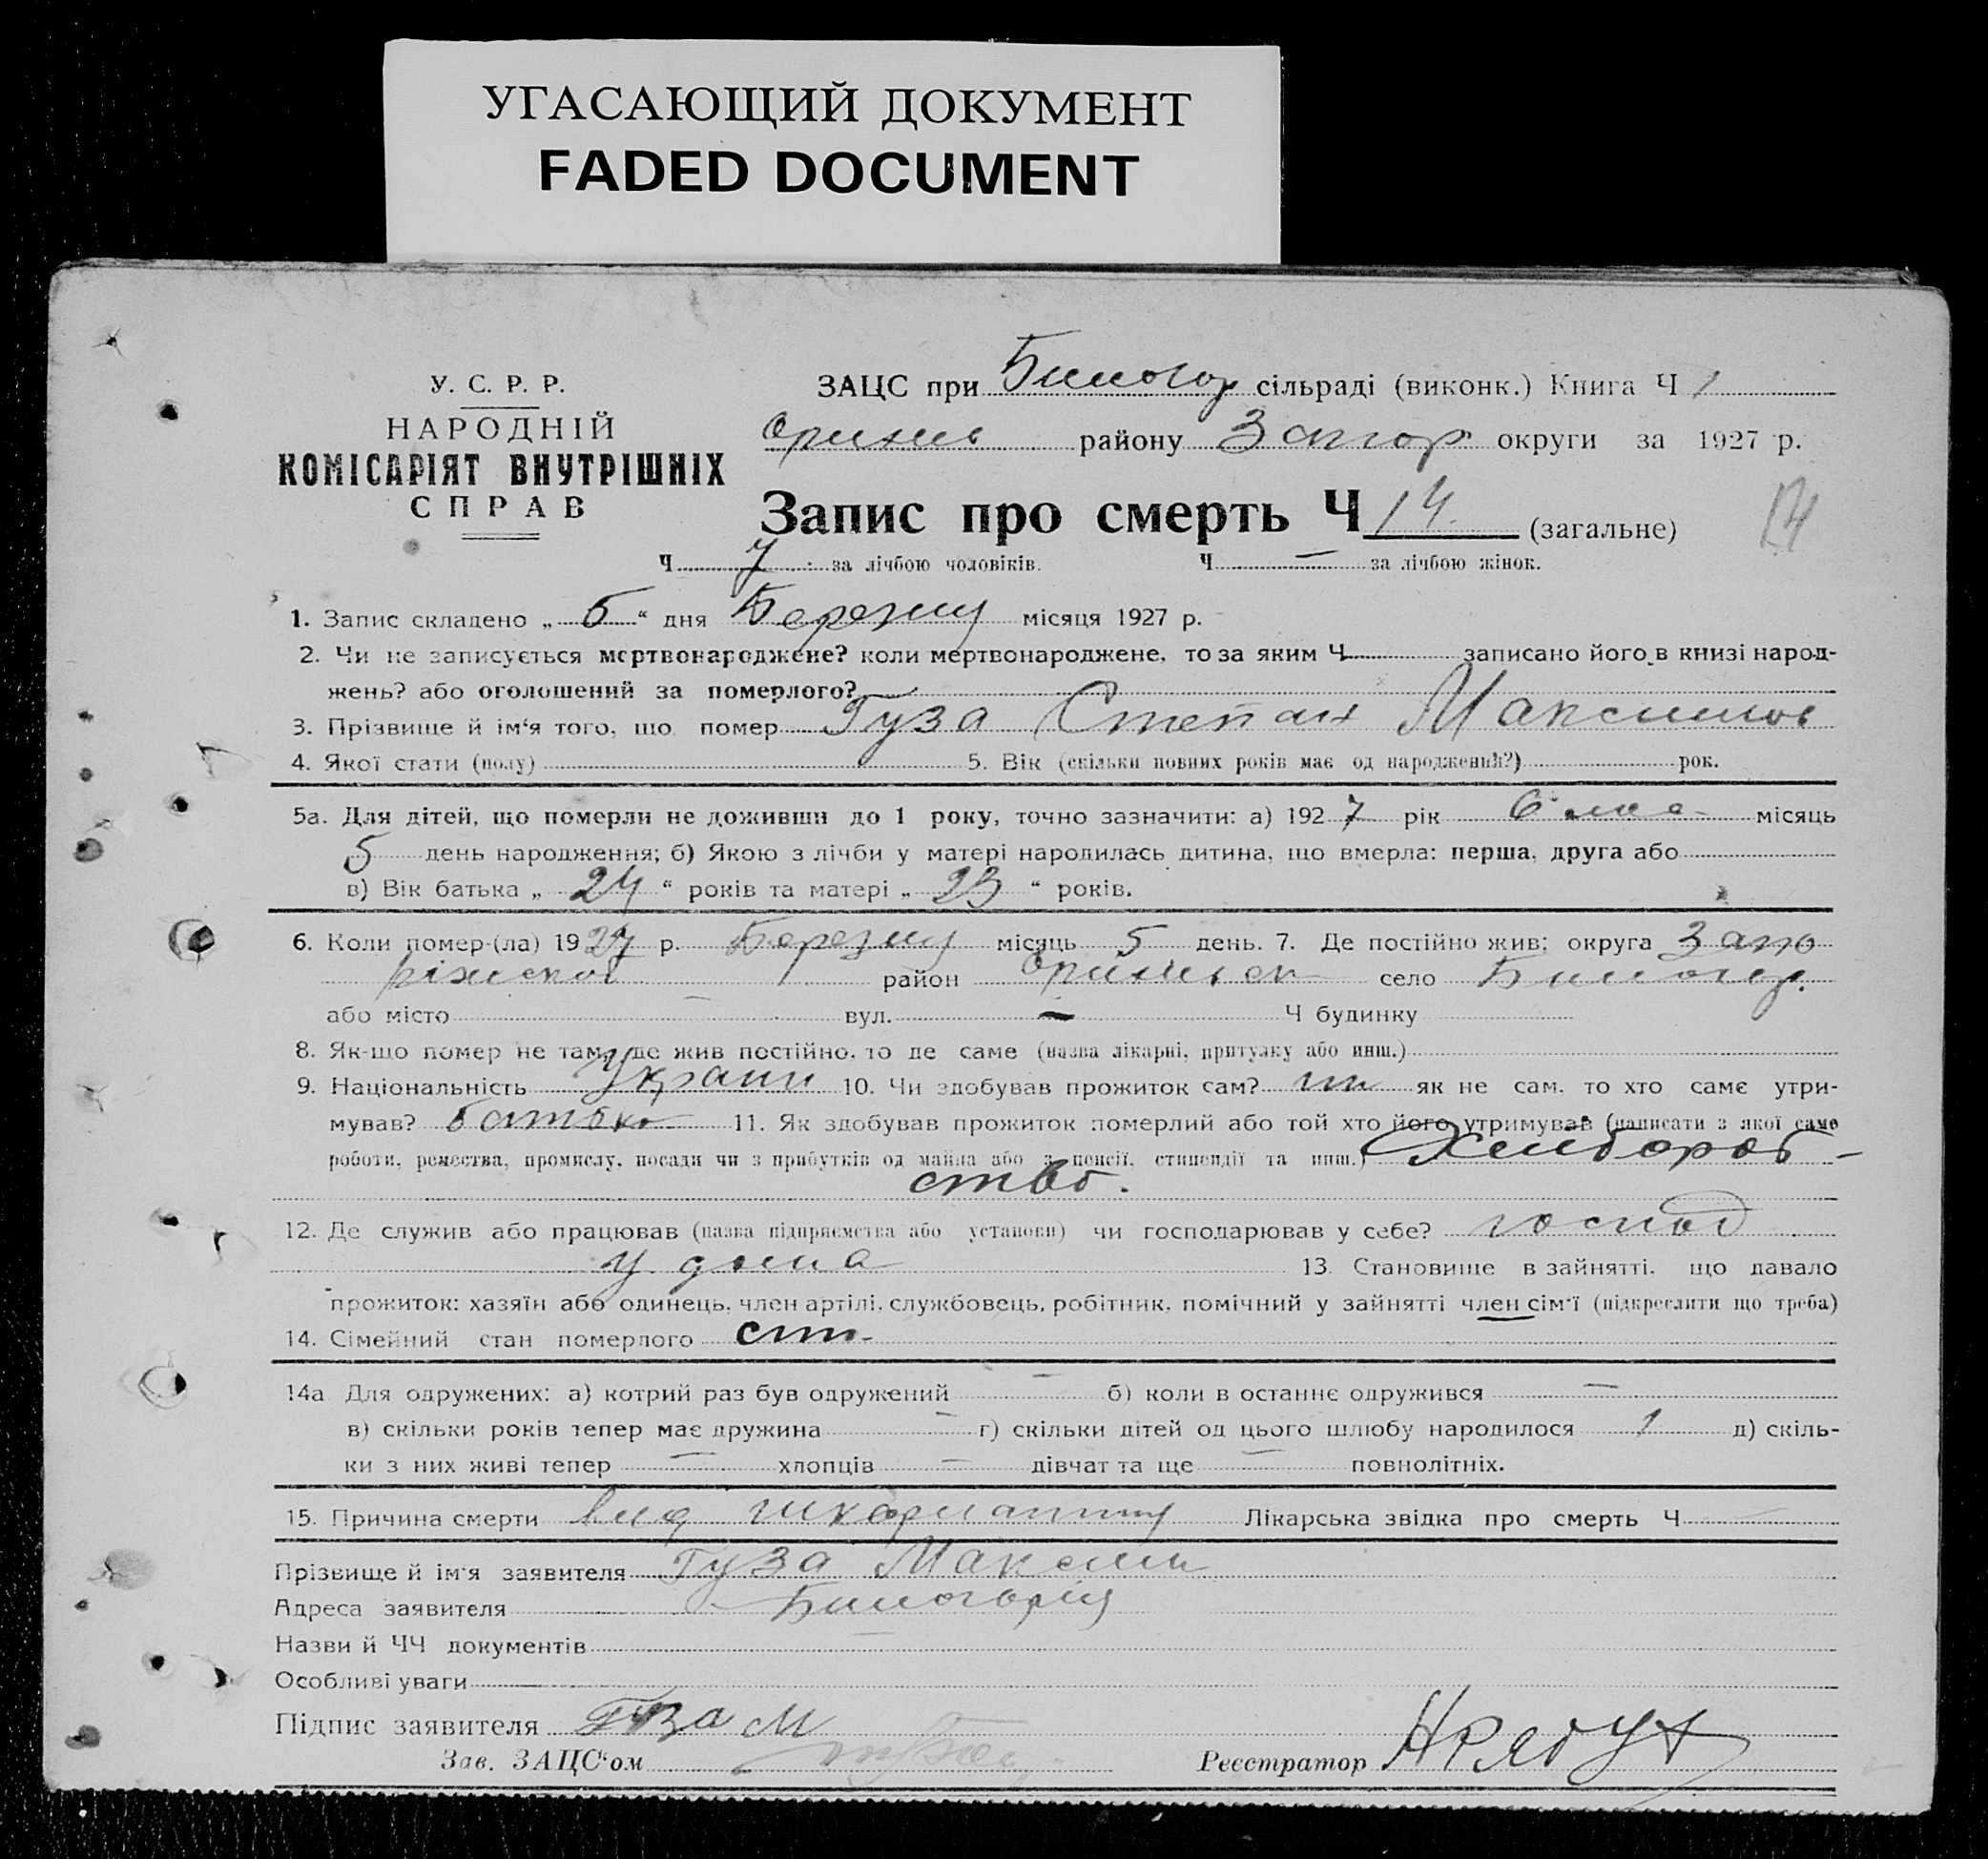 УГАСАЮЩИЙ ДОКУМЕНТ
FADED DOCUMENT
У. С. Р. Р.
НАРОДНІЙ
КОМІСАРІЯТ ВНУТРІШНІХ
СПРАВ
ЗАЦС при сільраді (виконк.) Книга Ч 1
району Запор округи за 1927 р.
Запис про смерть Ч 14. (загальне) 14
Ч 7 за лічбою чоловіків. Ч — за лічбою жінок.
1. Запис складено „ 5 “ дня Березня місяця 1927 р.
2. Чи не записується мертвонароджене? коли мертвонароджене, то за яким Ч записано його в книзі народ-
жень? або оголошений за померлого?
3. Прізвище й ім‘я того, що помер Гуза Степан Максимов
4. Якої стати (полу) 5. Вік (скільки повних років має од народження?) рок.
5а. Для дітей, що померли не доживши до 1 року, точно зазначити: а) 192 7 рік 6 мас місяць
5 день народження; б) Якою з лічби у матері народилась дитина, що вмерла: перша, друга або
в) Вік батька „ 24 “ років та матері „ 23 “ років.
6. Коли помер-(ла) 19 27 р. Березня місяць 5 день. 7. Де постійно жив: округа Запо
ріжской район село
або місто — вул. — Ч будинку
8. Як-що помер не там, де жив постійно, то де саме (назва лікарні, притулку або инш.)
9. Національність Украин 10. Чи здобував прожиток сам? ни як не сам, то хто саме утри-
мував? батько 11. Як здобував прожиток померлий або той хто його утримував (написати з якої саме
роботи, ремества, промислу, посади чи з прибутків од майна або з пенсії, стипендії та инш.) Хлибороб-
ство.
12. Де служив або працював (назва підприємства або установи) чи господарював у себе? господ
у дома 13. Становище в зайнятті, що давало
прожиток: хазяїн або одинець, член артілі, службовець, робітник, помічний у зайнятті член сім‘ї (підкреслити що треба)
14. Сімейний стан померлого
14а Для одружених: а) котрий раз був одружений — б) коли в останнє одружився —
в) скільки років тепер має дружина — г) скільки дітей од цього шлюбу народилося 1 д) скіль-
ки з них живі тепер — хлопців — дівчат та ще — повнолітніх.
15. Причина смерти вид шкарлатини Лікарська звідка про смерть Ч
Прізвище й ім‘я заявителя Гуза Максим
Адреса заявителя
Назви й ЧЧ документів
Особливі уваги
Підпис заявителя Гуза М
Зав. ЗАЦС‘ом
Реєстратор Н Рябух